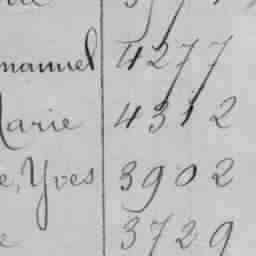 manuel 4277
Marie 4312
e, Yves 3902
e 3729